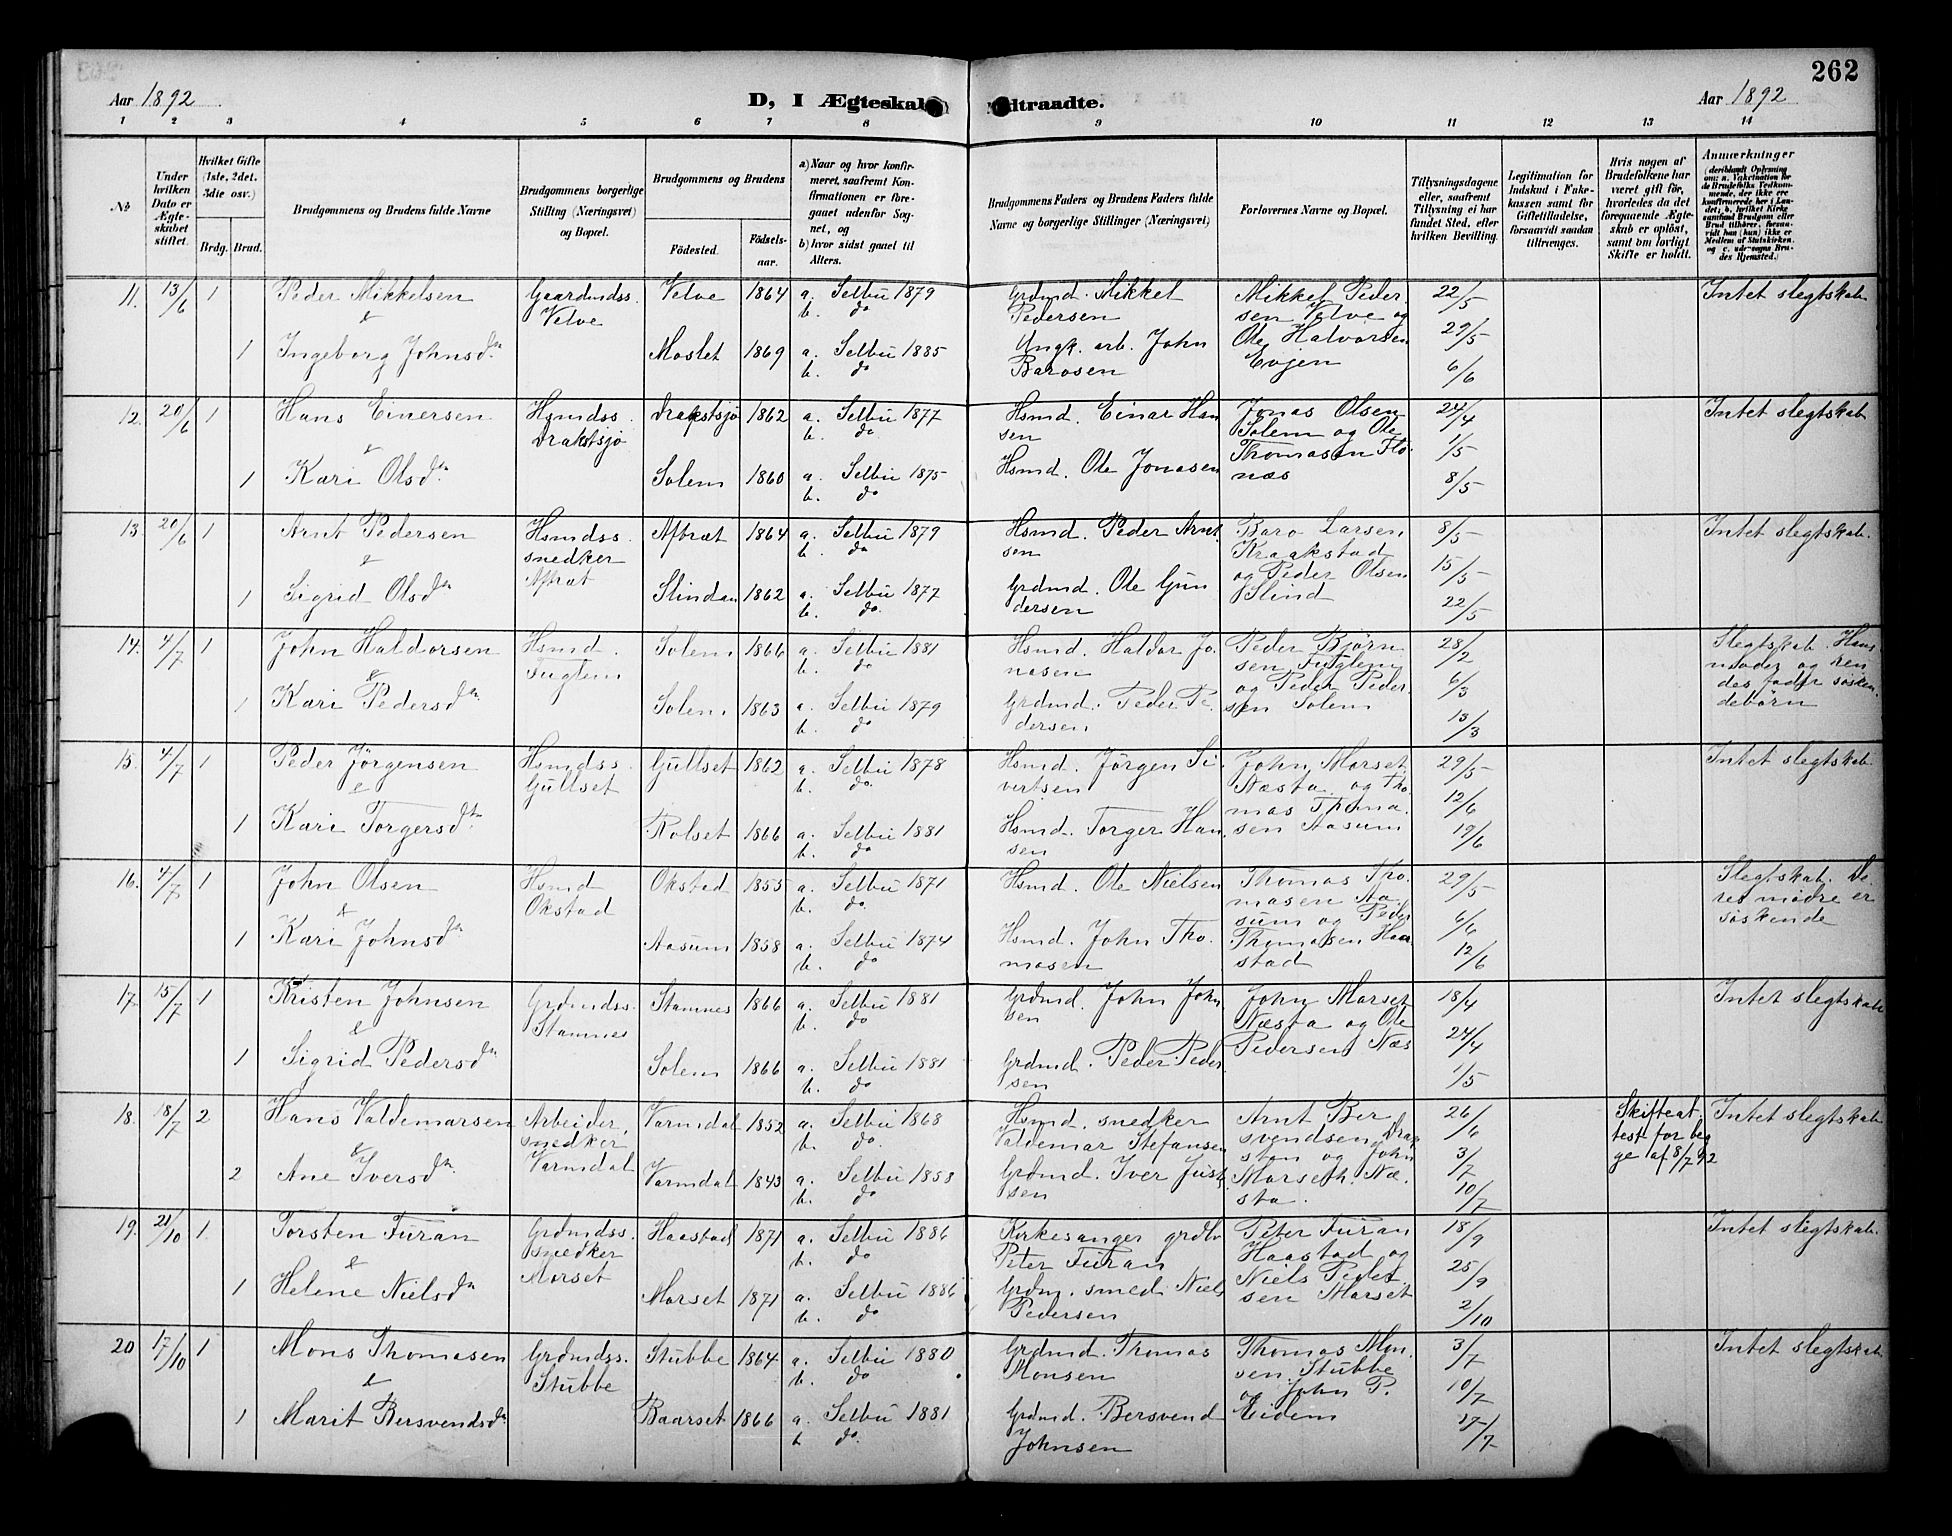 262
Aar 1892. D, I Ægteskab Indtraadte. Aar 1892
1 2 3 4 5 6 7 8 9 10 11 12 13 14
№
Under hvilken Dato er Ægteskabet stiftet.
Hvilket Gifte (1ste, 2det. 3die osv.)
Brdg. Brud.
Brudgommens og Brudens fulde Navne
Brudgommens borgerlige Stilling (Næringsvei) og Bopæl.
Brudgommens og Brudens
Fødested. Fødsels-aar.
a) Naar og hvor konfirmeret, saafremt Konfirmationen er foregaaet udenfor Sognet, og
b) hvor sidst gaaet til Alters.
Brudgommens Faders og Brudens Faders fulde Navne og borgerlige Stillinger (Næringsvei)
Forlovernes Navne og Bopæl.
Tillysningsdagene eller, saafremt Tillysning ei har fundet Sted, efter hvilken Bevilling.
Legitimation for Indskud i Fakekassen samt for Giftetilladelse, forsaavidt saadan tiltrænges.
Hvis nogen af Brudefolkene har været gift før, hvorledes da det foregaaende Ægteskab er opløst, samt om lovligt Skifte er holdt.
Anmærkninger
(deriblandt Oplysning om: a. Vakcination for de Brudefolks Vedkommende, der ikke ere konfirmerede her i Landet; b. hvilket Kirkesamfund Brudgom eller Brud tilhører, forsaavidt han (hun) ikke er Medlem af Statskirken, og c. udensogns Brudes Hjemsted.)
11. 13/6 1 Peder Mikkelsen Gaardmdss. Velve Velve 1864 a. Selbu 1879 b. do Grdmd. Mikkel Pedersen Mikkel Pedersen Velve og Ole Halvorsen Evjen 22/5 29/5 6/6 Intet slegtskab
&
1 Ingeborg Johnsdtr Moslet 1869 a. Selbu 1885 b. do Ungk. arb. John Barosen
12. 20/6 1 Hans Einersen Hsmdss. Drakstsjø Drakstsjø 1862 a. Selbu 1877 b. do Hsmd. Einar Hansen Jonas Olsen Solem og Ole Thomasen Flonæs 24/4 1/5 8/5 Intet slegtskab
&
1 Kari Olsdtr Solem 1860 a. Selbu 1875 b. do Hsmd. Ole Jonasen
13. 20/6 1 Arnt Pedersen Hsmdss. snedker Aftræt Aftræt 1864 a. Selbu 1879 b. do Hsmd. Peder Arntsen Baro Larsen Kraakstad og Peder Olsen Slind 8/5 15/5 22/5 Intet slegtskab.
&
1 Sigrid Olsdtr Slindan 1862 a. Selbu 1877 b. do. Grdmd. Ole Gundersen
14. 4/7 1 John Haldorsen Hsmd. Fuglem Solem 1866 a. Selbu 1881 b. do Hsmd. Haldor Jonasen Peder Bjørnsen Fuglem og Peder Pedersen Solem 28/2 6/3 13/3 Slegtskab. Hans moder og hendes fader søskendebørn
&
1 Kari Pedersdtr Solem 1863 a. Selbu 1879 b. do Grdmd. Peder Pedersen
15. 4/7 1 Peder Jørgensen Hsmdss. Gullset Gullset 1862 a. Selbu 1878 b. do. Hsmd. Jørgen Sivertsen John Morset Næsta og Thomas Thomasen Aasum 29/5 12/6 19/6 Intet slegtskab
&
1 Kari Torgersdtr. Rolset 1866 a. Selbu 1881 b. do Hsmd. Torger Hansen
16. 4/7 1 John Olsen Hsmd Okstad Okstad 1855 a. Selbu 1871 b. do. Hsmd. Ole Nielsen Thomas Thomasen Aasum og Peder Thomasen Haastad 29/5 6/6 12/6 Slegtskab. Deres mødre er søskende
&
1 Kari Johnsdtr Aasum 1858 a. Selbu 1874 b. do Hsmd. John Thomasen
17. 15/7 1 Kristen Johnsen Grdmdss. Stamnes Stamnes 1866 a. Selbu 1881 b. do Grdmd. John Johnsen John Morset Næsta og Ole Pedersen Næs 18/4 24/4 1/5 Intet slegtskab
&
1 Sigrid Pedersdtr Solem 1866 a. Selbu 1881 b. do Grdmd. Peder Pedersen
18. 18/7 2 Hans Valdemarsen Arbeider, snedker Varmdal Varmdal 1852 a. Selbu 1868 b. do. Hsmd. snedker Valdemar Stefansen Arnt Bersvendsen Draksten og John Morseth. Næsta. 26/6 3/7 10/7 Skifteattest for begge af 8/7 92 Intet slegtskab
&
2 Ane Iversdtr. Varmdal 1843 a. Selbu 1858 b. do Grdmd. Iver Justsen
19. 21/10 1. Torsten Furan Grdmdss. snedker Morset Haastad 1871 a. Selbu 1886 b. do Kirkesanger grdbr Peter Furan Peter Furan Haastad og Niels Pedersen Morset 18/9 25/9 2/10 Intet slegtskab.
&
1 Helene Nielsdtr Morset 1871 a. Selbu 1886 b. do Grdm. smed Niels Pedersen
20 17/10 1 Mons Thomasen Grdmdss. Stubbe Stubbe 1864 a. Selbu 1880 b. do Grdmd. Thomas Monsen Thomas Monsen Stubbe og John P. Eidem 3/7 10/7 17/7 Intet slegtskab.
&
1 Marit Bersvendsdtr Baarset 1866 a. Selbu 1881 b do. Grdmd. Bersvend Johnsen